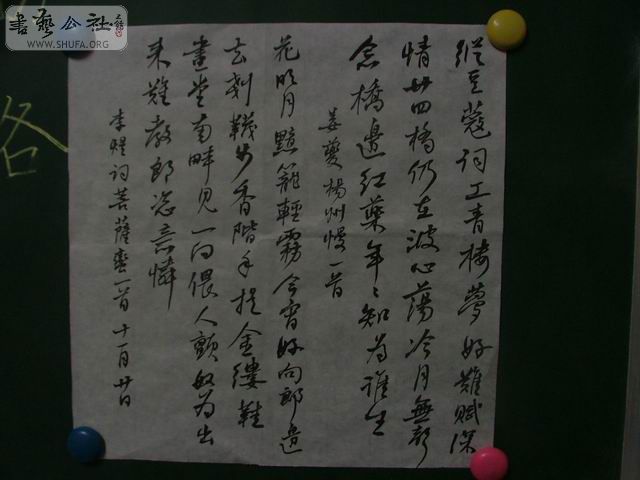 書藝公社
WWW.SHUFA.ORG
縱豆蔻词工青楼夢好難賦深
情廿四橋仍在波心蕩冷月無聲
念橋邊紅藥年々知為誰生
姜夔楊州慢一首
花明月黯籠輕霧今宵好向郎邊
去剗襪步香階手提金縷鞋
畫堂南畔見一向偎人顫奴為出
来難教郎恣意憐
李煜词菩薩蛮一首 十一月廿日
各